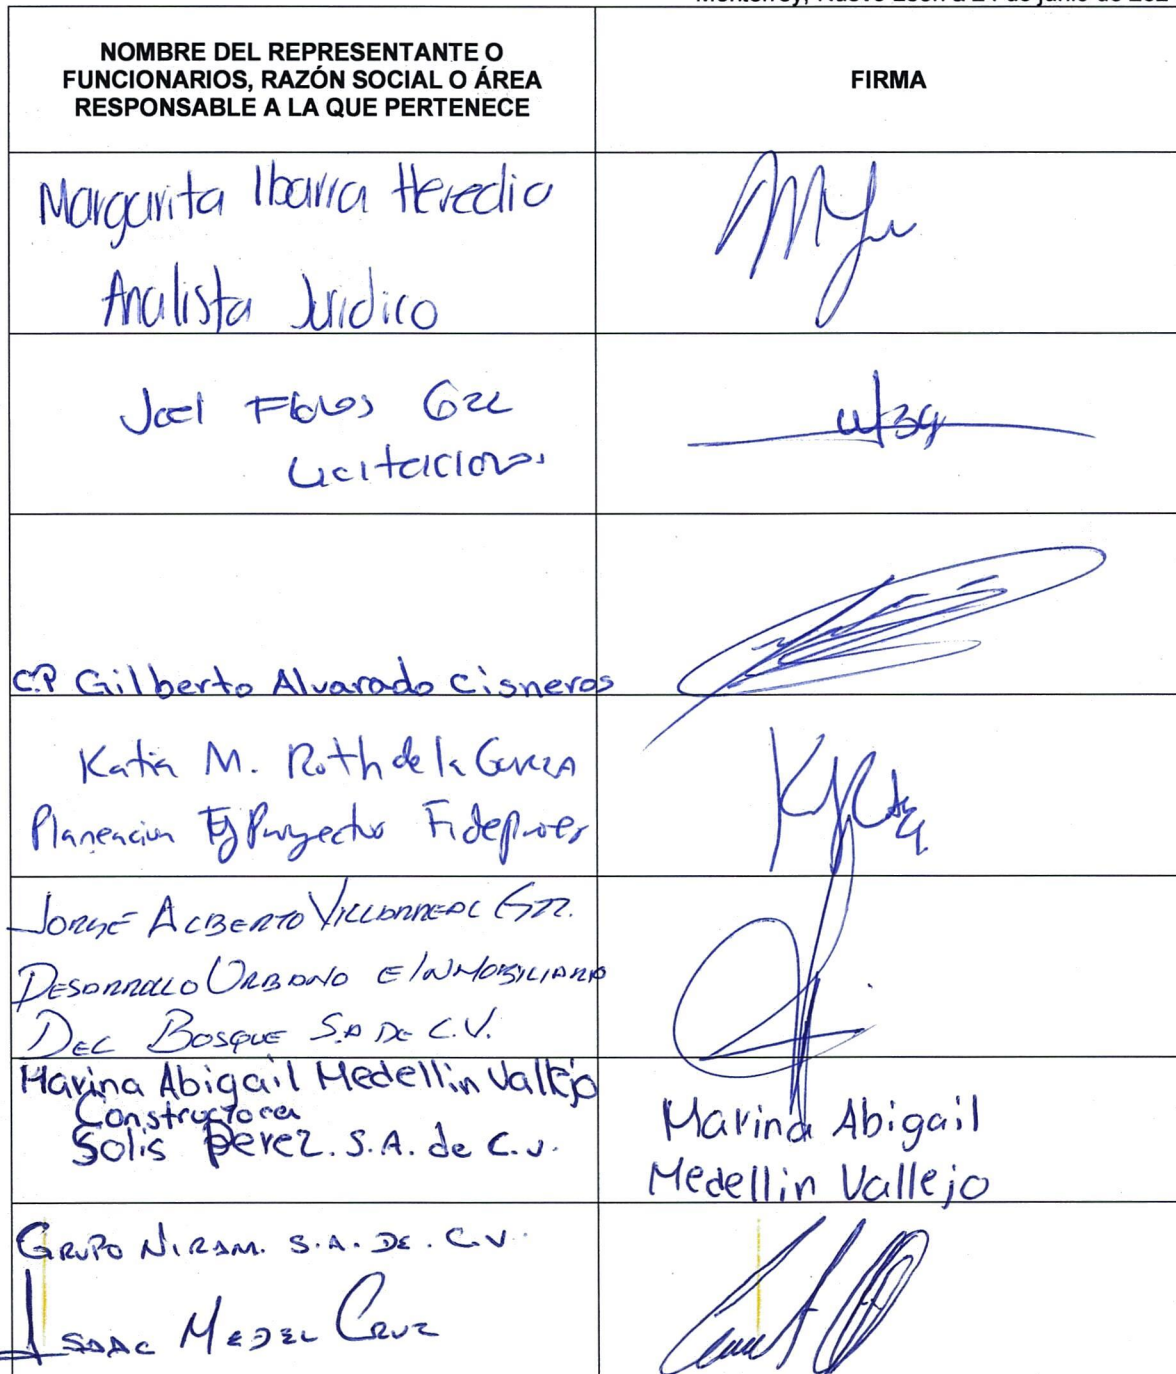 Monterrey, Nuevo León a 24 de junio de 202
NOMBRE DEL REPRESENTANTE O
FUNCIONARIOS, RAZÓN SOCIAL O ÁREA
RESPONSABLE A LA QUE PERTENECE
FIRMA
Margarita Ibarra Heredia
Analista Jurídico
Joel Flores Gzz
Licitaciones
C.P Gilberto Alvarado Cisneros
Katia M. Roth de la Garza
Planeacion Ej Proyectos Fideprores
JORGE ALBERTO VILLARREAL GZZ.
DESARROLLO URBANO E INMOBILIARIO
DEL BOSQUE S.A DE C.V.
Marina Abigail Medellin Vallejo
Constructora
Solis Perez. S.A. de C.V.
Marina Abigail
Medellin Vallejo
GRUPO NIRAM. S.A. DE. C.V.
ISAAC MEDEL CRUZ